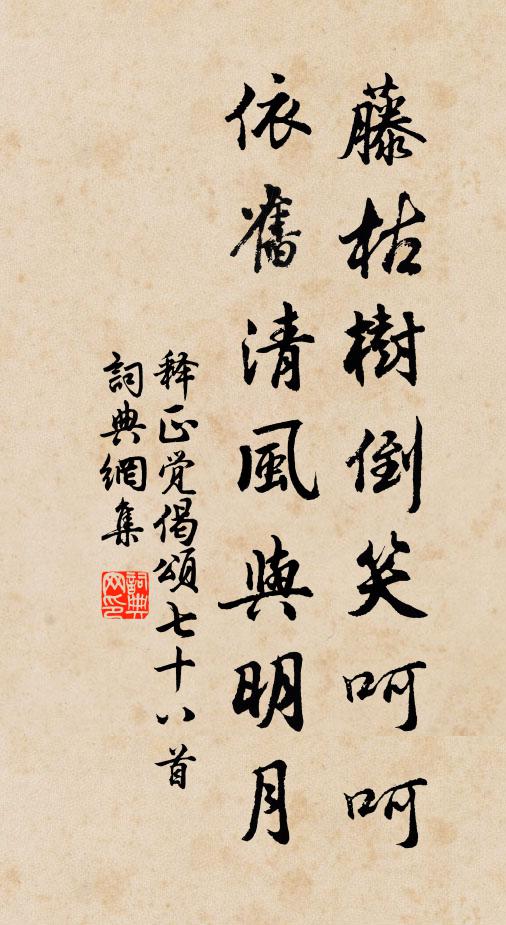 藤枯樹倒笑呵呵
依舊清風與明月
释正觉偈頌七十八首
詞典網集
詞典网印